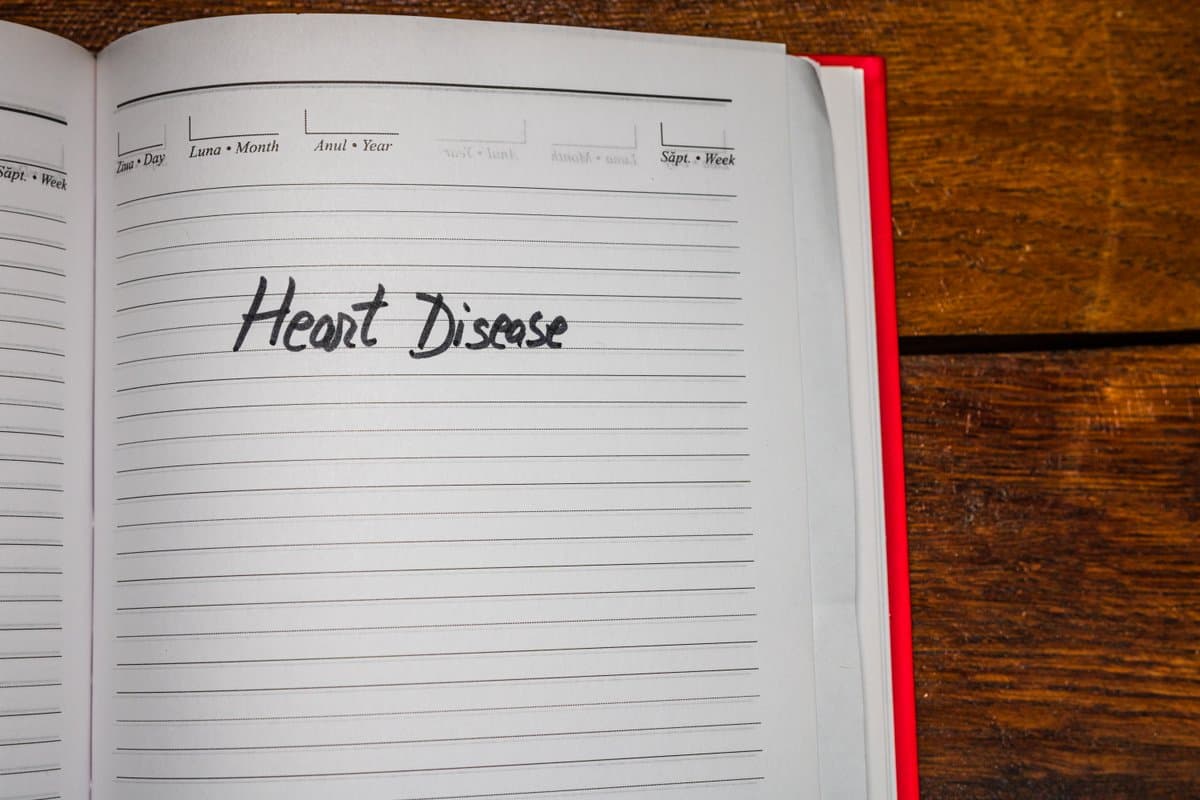 Ziua • Day Luna • Month Anul • Year Săpt. • Week
Săpt. • Week
Heart Disease